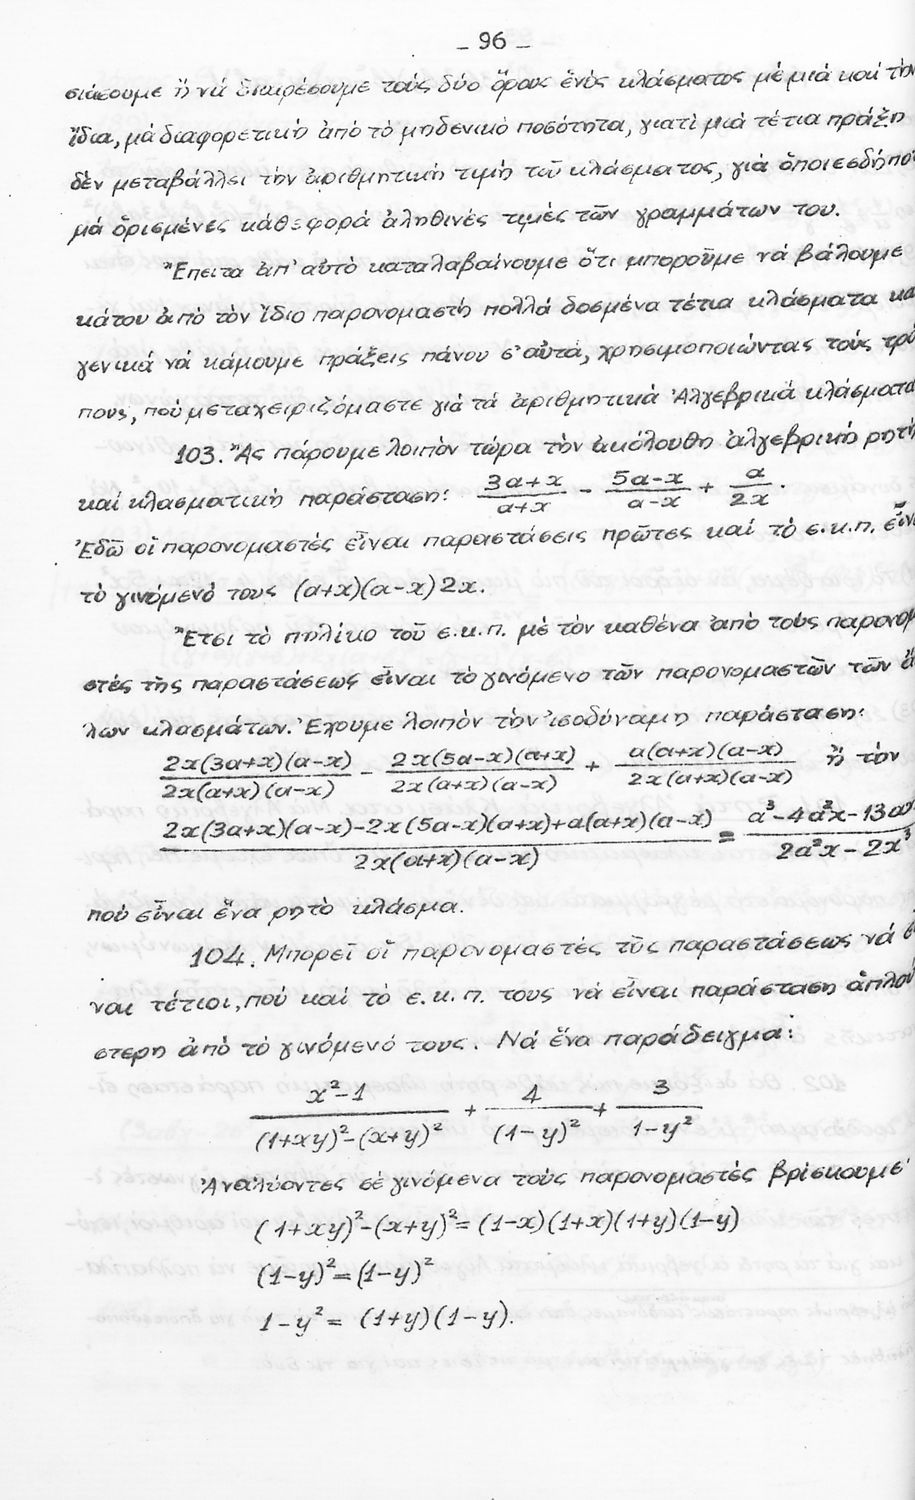 - 96 -
σιάσουμε ἤ νά διαιρέσουμε τούς δύο ὅρους ἑνός κλάσματος μέ μιά καί τήν
ἴδια, μά διαφορετική ἀπό τό μηδενικό ποσότητα, γιατί μιά τέτια πράξη
δέν μεταβάλλει τήν ἀριθμητική τιμή τοῦ κλάσματος, γιά ὁποιεσδήπο
μά ὁρισμένες κάθε φορά ἀληθινές τιμές τῶν γραμμάτων του.
Ἔπειτα ἀπ' αὐτό καταλαβαίνουμε ὅτι μποροῦμε νά βάλουμε
κάτου ἀπό τόν ἴδιο παρονομαστή πολλά δοσμένα τέτια κλάσματα κα
γενικά νά κάμουμε πράξεις πάνου σ' αὐτά, χρησιμοποιώντας τούς τρό
πους, πού μεταχειριζόμαστε γιά τά ἀριθμητικά Ἀλγεβρικά κλάσματα
103. Ἄς πάρουμε λοιπόν τώρα τόν ἀκόλουθη ἀλγεβρική ρητή
καί κλασματική παράσταση: (3α+x)/(α+x) - (5α-x)/(α-x) + α/2x.
Ἐδῶ οἱ παρονομαστές εἶναι παραστάσεις πρῶτες καί τό ε.κ.π. εἶν
τό γινόμενό τους (α+x)(α-x)2x.
Ἔτσι τό πηλίκο τοῦ ε.κ.π. μέ τόν καθένα ἀπό τούς παρονομ
στές τῆς παραστάσεως εἶναι τό γινόμενο τῶν παρονομαστῶν τῶν ἄ
λων κλασμάτων. Ἔχουμε λοιπόν τήν ἰσοδύναμη παράσταση:
2x(3α+x)(α-x)/2x(α+x)(α-x) - 2x(5α-x)(α+x)/2x(α+x)(α-x) + α(α+x)(α-x)/2x(α+x)(α-x) ἤ τόν
(2x(3α+x)(α-x)-2x(5α-x)(α+x)+α(α+x)(α-x))/2x(α+x)(α-x) = (α³-4α²x-13α)/(2α²x-2x³)
πού εἶναι ἕνα ρητό κλάσμα.
104. Μπορεῖ οἱ παρονομαστές τῆς παραστάσεως νά εἶ
ναι τέτιοι, πού καί τό ε.κ.π. τους νά εἶναι παράσταση ἁπλού
στερη ἀπό τό γινόμενό τους. Νά ἕνα παράδειγμα:
(x²-1)/((1+xy)²-(x+y)²) + 4/(1-y)² + 3/(1-y²)
Ἀναλύοντες σέ γινόμενα τούς παρονομαστές βρίσκουμε
(1+xy)²-(x+y)²= (1-x)(1+x)(1+y)(1-y)
(1-y)²=(1-y)²
1-y²= (1+y)(1-y).